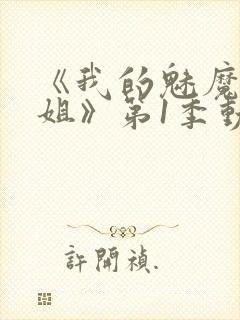 《我的魅魔
姐》第1季動
許開禎.